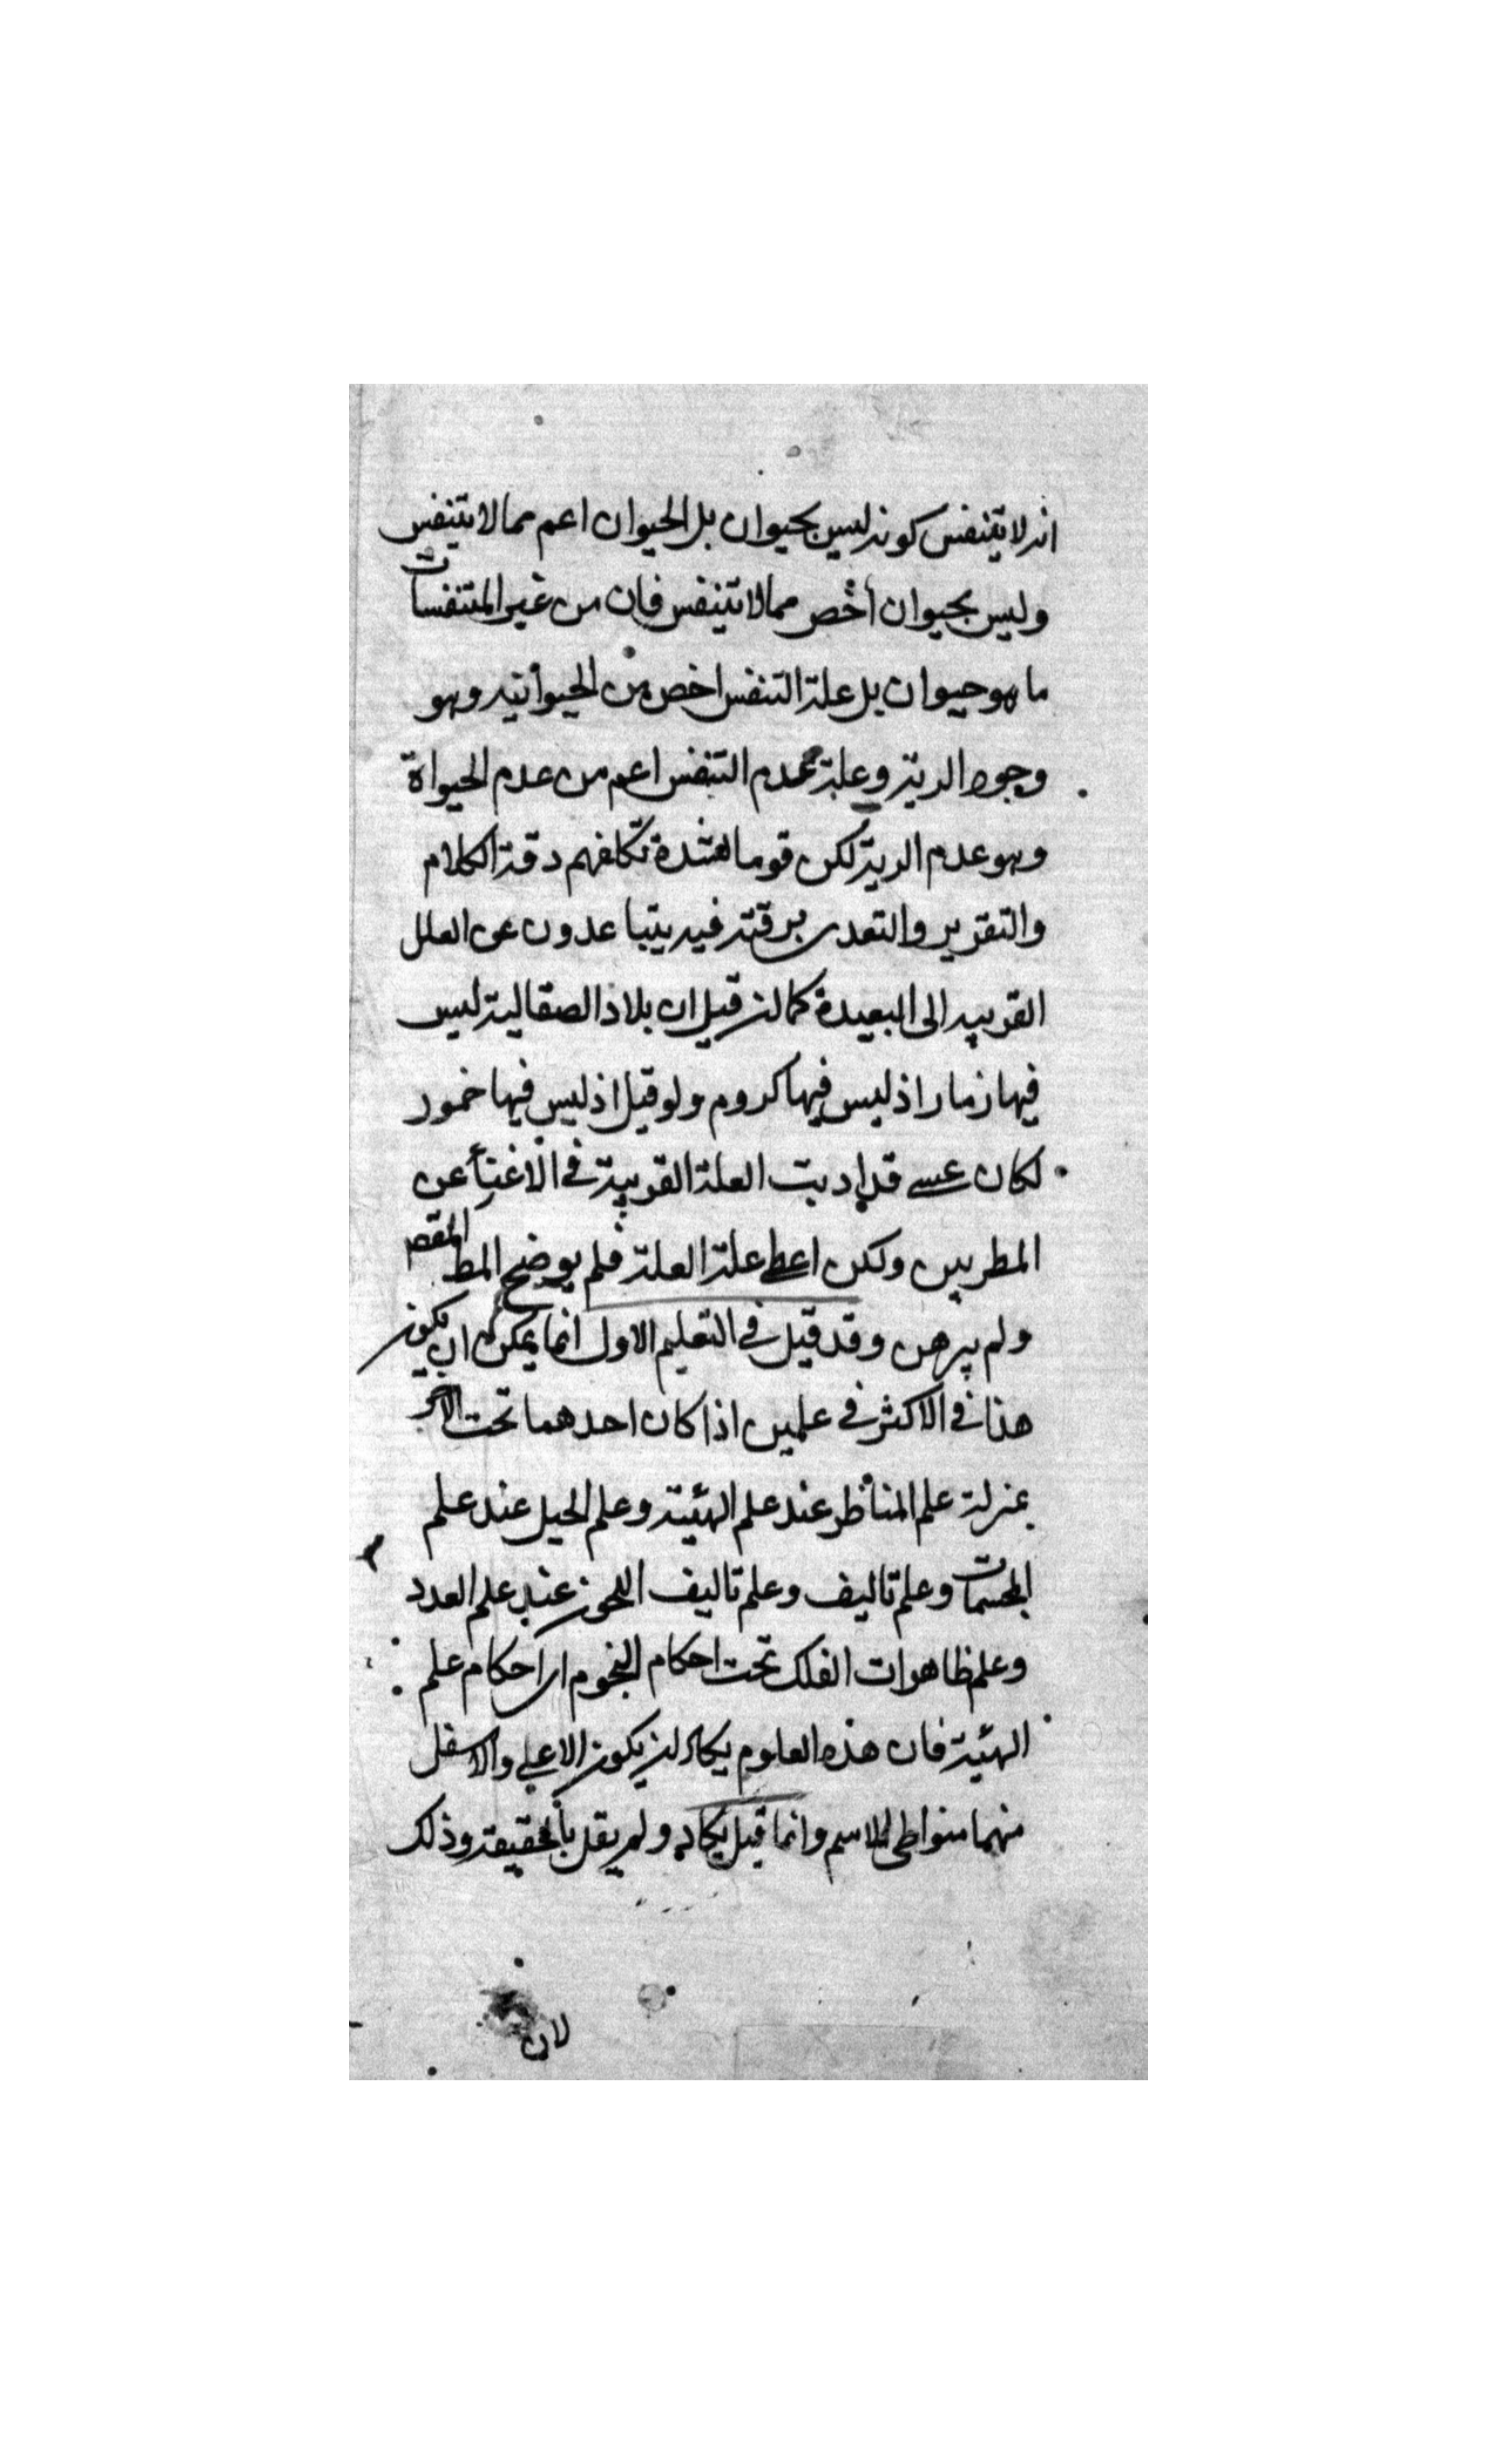 انه لا يتنفس كونه ليس بحيوان بل الحيوان اعم مما لا يتنفس
وليس بحيوان اخص مما لا يتنفس فان من غير المتنفسات
ما هو حيوان بل علة التنفس اخص من الحيوانيه وهو
وجود الرية وعلة عدم التنفس اعم من عدم الحيواة
وهو عدم الرية لكن قوما لشدة تكلفهم دقة الكلام
والتقرير والتعدى برقته فيه يتباعدون عن العلل
القريبه الى البعيدة كما لن قيل ان بلاد الصقالية ليس
فيها زمارا ذ ليس فيها كروم ولو قيل اذ ليس فيها خمور
لكان عسى قد اديت العلة القريبة فى الاغنيأ عن
المطربين ولكن اعطى علة العلة فلم يوضح المط المقص
ولم يبرهن وقد قيل فى التعليم الاول انما يمكن ان يكون
هذا فى الاكثر فى علمين اذا كان احدهما تحت الاخر
بمنزلة علم المناظر عند علم الهيئة وعلم الحيل عند علم
المجسمات وعلم تاليف وعلم تاليف اللحون عند علم العدد
وعلم ظاهرات الفلك تحت احكام النجوم اى احكام علم
الهيئة فان هذه العلوم يكاد لن يكون الاعلى والاسفل
منهما متواطى للاسم وانما قيل يكاد ولم يقل بالحقيقة وذلك
لان